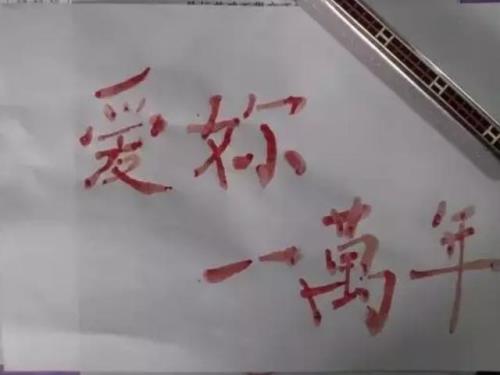 爱妳
一萬年